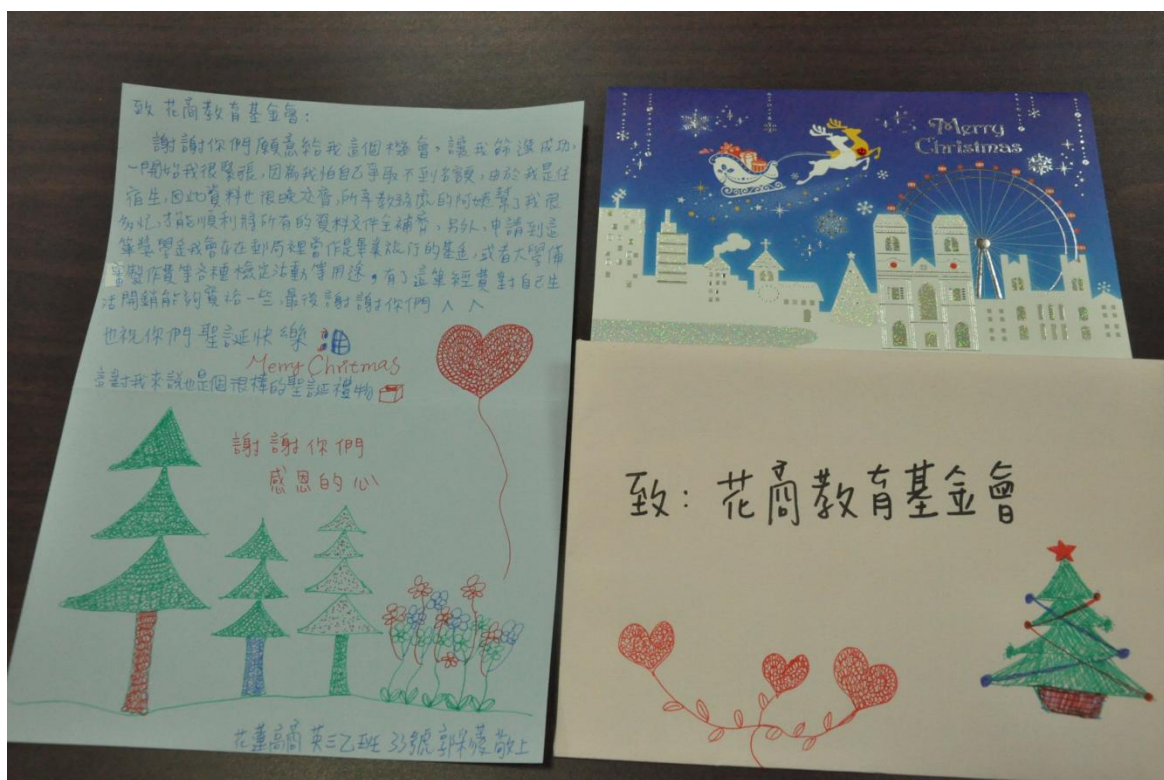 致 花商教育基金會：
謝謝你們願意給我這個機會，讓我篩選成功，
一開始我很緊張，因為我怕自己爭取不到名額，由於我是住
宿生，因此資料也很晚交齊，所幸教務處的阿姨幫了我很
多忙，才能順利將所有的資料文件全補齊，另外，申請到這
筆獎學金我會存在郵局裡當作是畢業旅行的基金，或者大學備
審製作費等各種檢定活動等用途，有了這筆經費對自己生
活開銷能夠寬裕一些，最後謝謝你們ㅅㅅ
也祝你們聖誕快樂
Merry Chritmas
這對我來說也是個很棒的聖誕禮物
謝謝你們
感恩的心
花蓮高商 英三乙班 33號 郭 敬上
Merry
Christmas
致：花商教育基金會